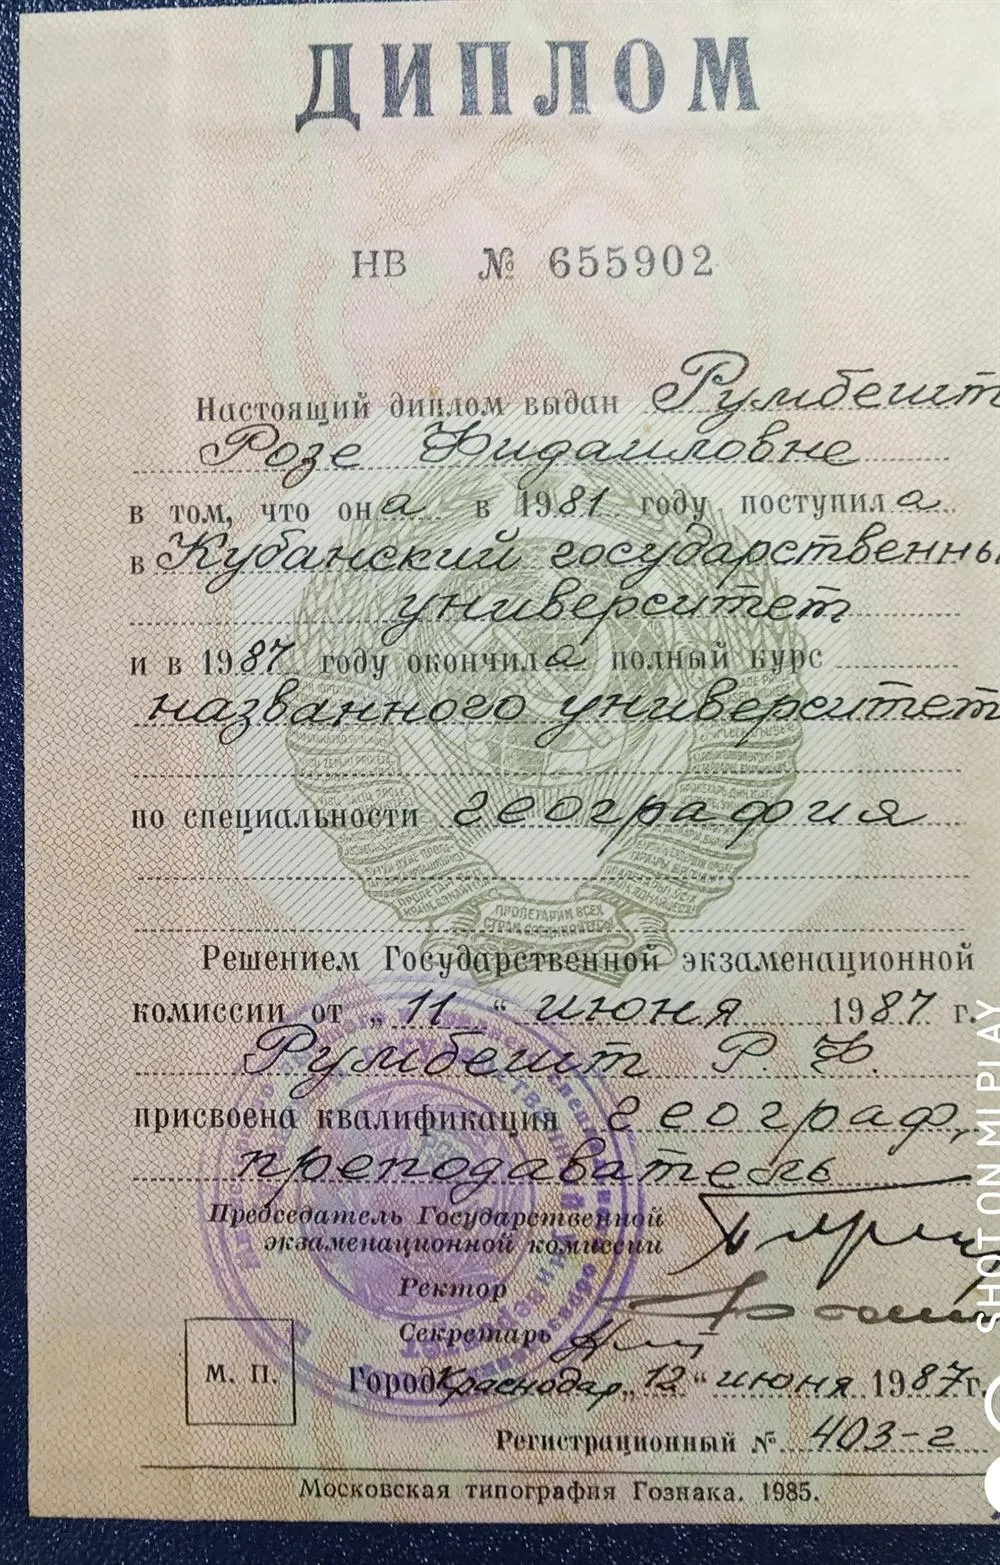 ДИПЛОМ
НВ № 655902
Настоящий диплом выдан Румбешт
Розе Фидаиловне
в том, что она в 1981 году поступила
в Кубанский государственны
университет
и в 1987 году окончила полный курс
названного университет
по специальности география
ПРОЛЕТАРИИ ВСЕХ
СТРАН, СОЕДИНЯЙТЕСЬ!
Решением Государственной экзаменационной
комиссии от „11“ июня 1987 г.
Румбешт Р. Ф.
присвоена квалификация географ,
преподаватель
Председатель Государственной
экзаменационной комиссии
Ректор
Секретарь
М. П.
Город Краснодар, „12“ июня 1987 г.
Регистрационный № 403-г
Московская типография Гознака. 1985.
SHOT ON MI PLAY